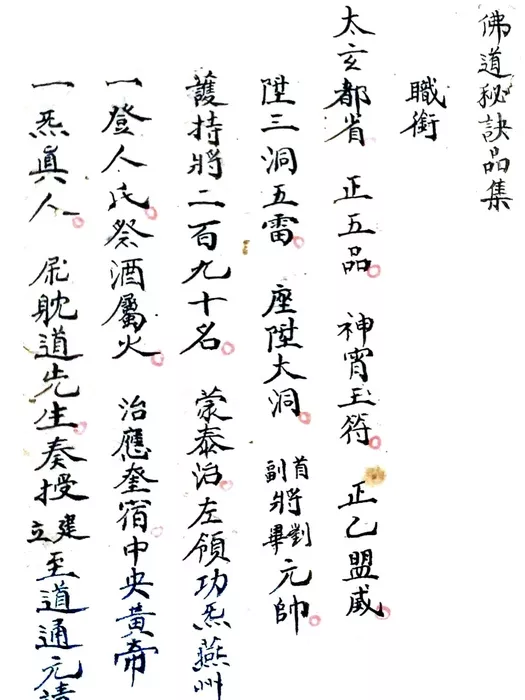 佛道秘訣品集
職銜
太玄都省 正五品。 神宵玉符。 正乙盟威。
陞三洞五雷。 座陞大洞。 首將劉副將畢元帥。
護持將二百九十名。 蒙泰治。左領功炁燕州
一登人氏。祭酒屬火。 治應奎宿中央黃帝
一炁真人。 躭道先生。奏授建立至道通元請